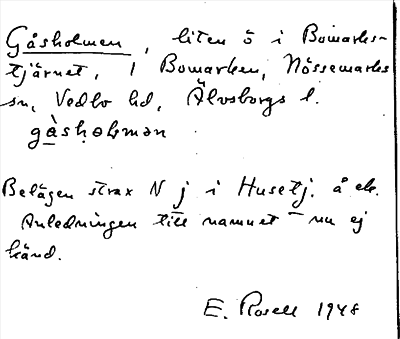 Gåsholmen, liten ö i Bomarks-
tjärnet, i Bomarken, Nössemarks
sn, Vedbo hd, Älvsborgs l.
gàsḥoḷmən
Belägen strax N j i Husetj. å ek.
Anledningen till namnet - nu ej
känd.
E. Rosell 1948